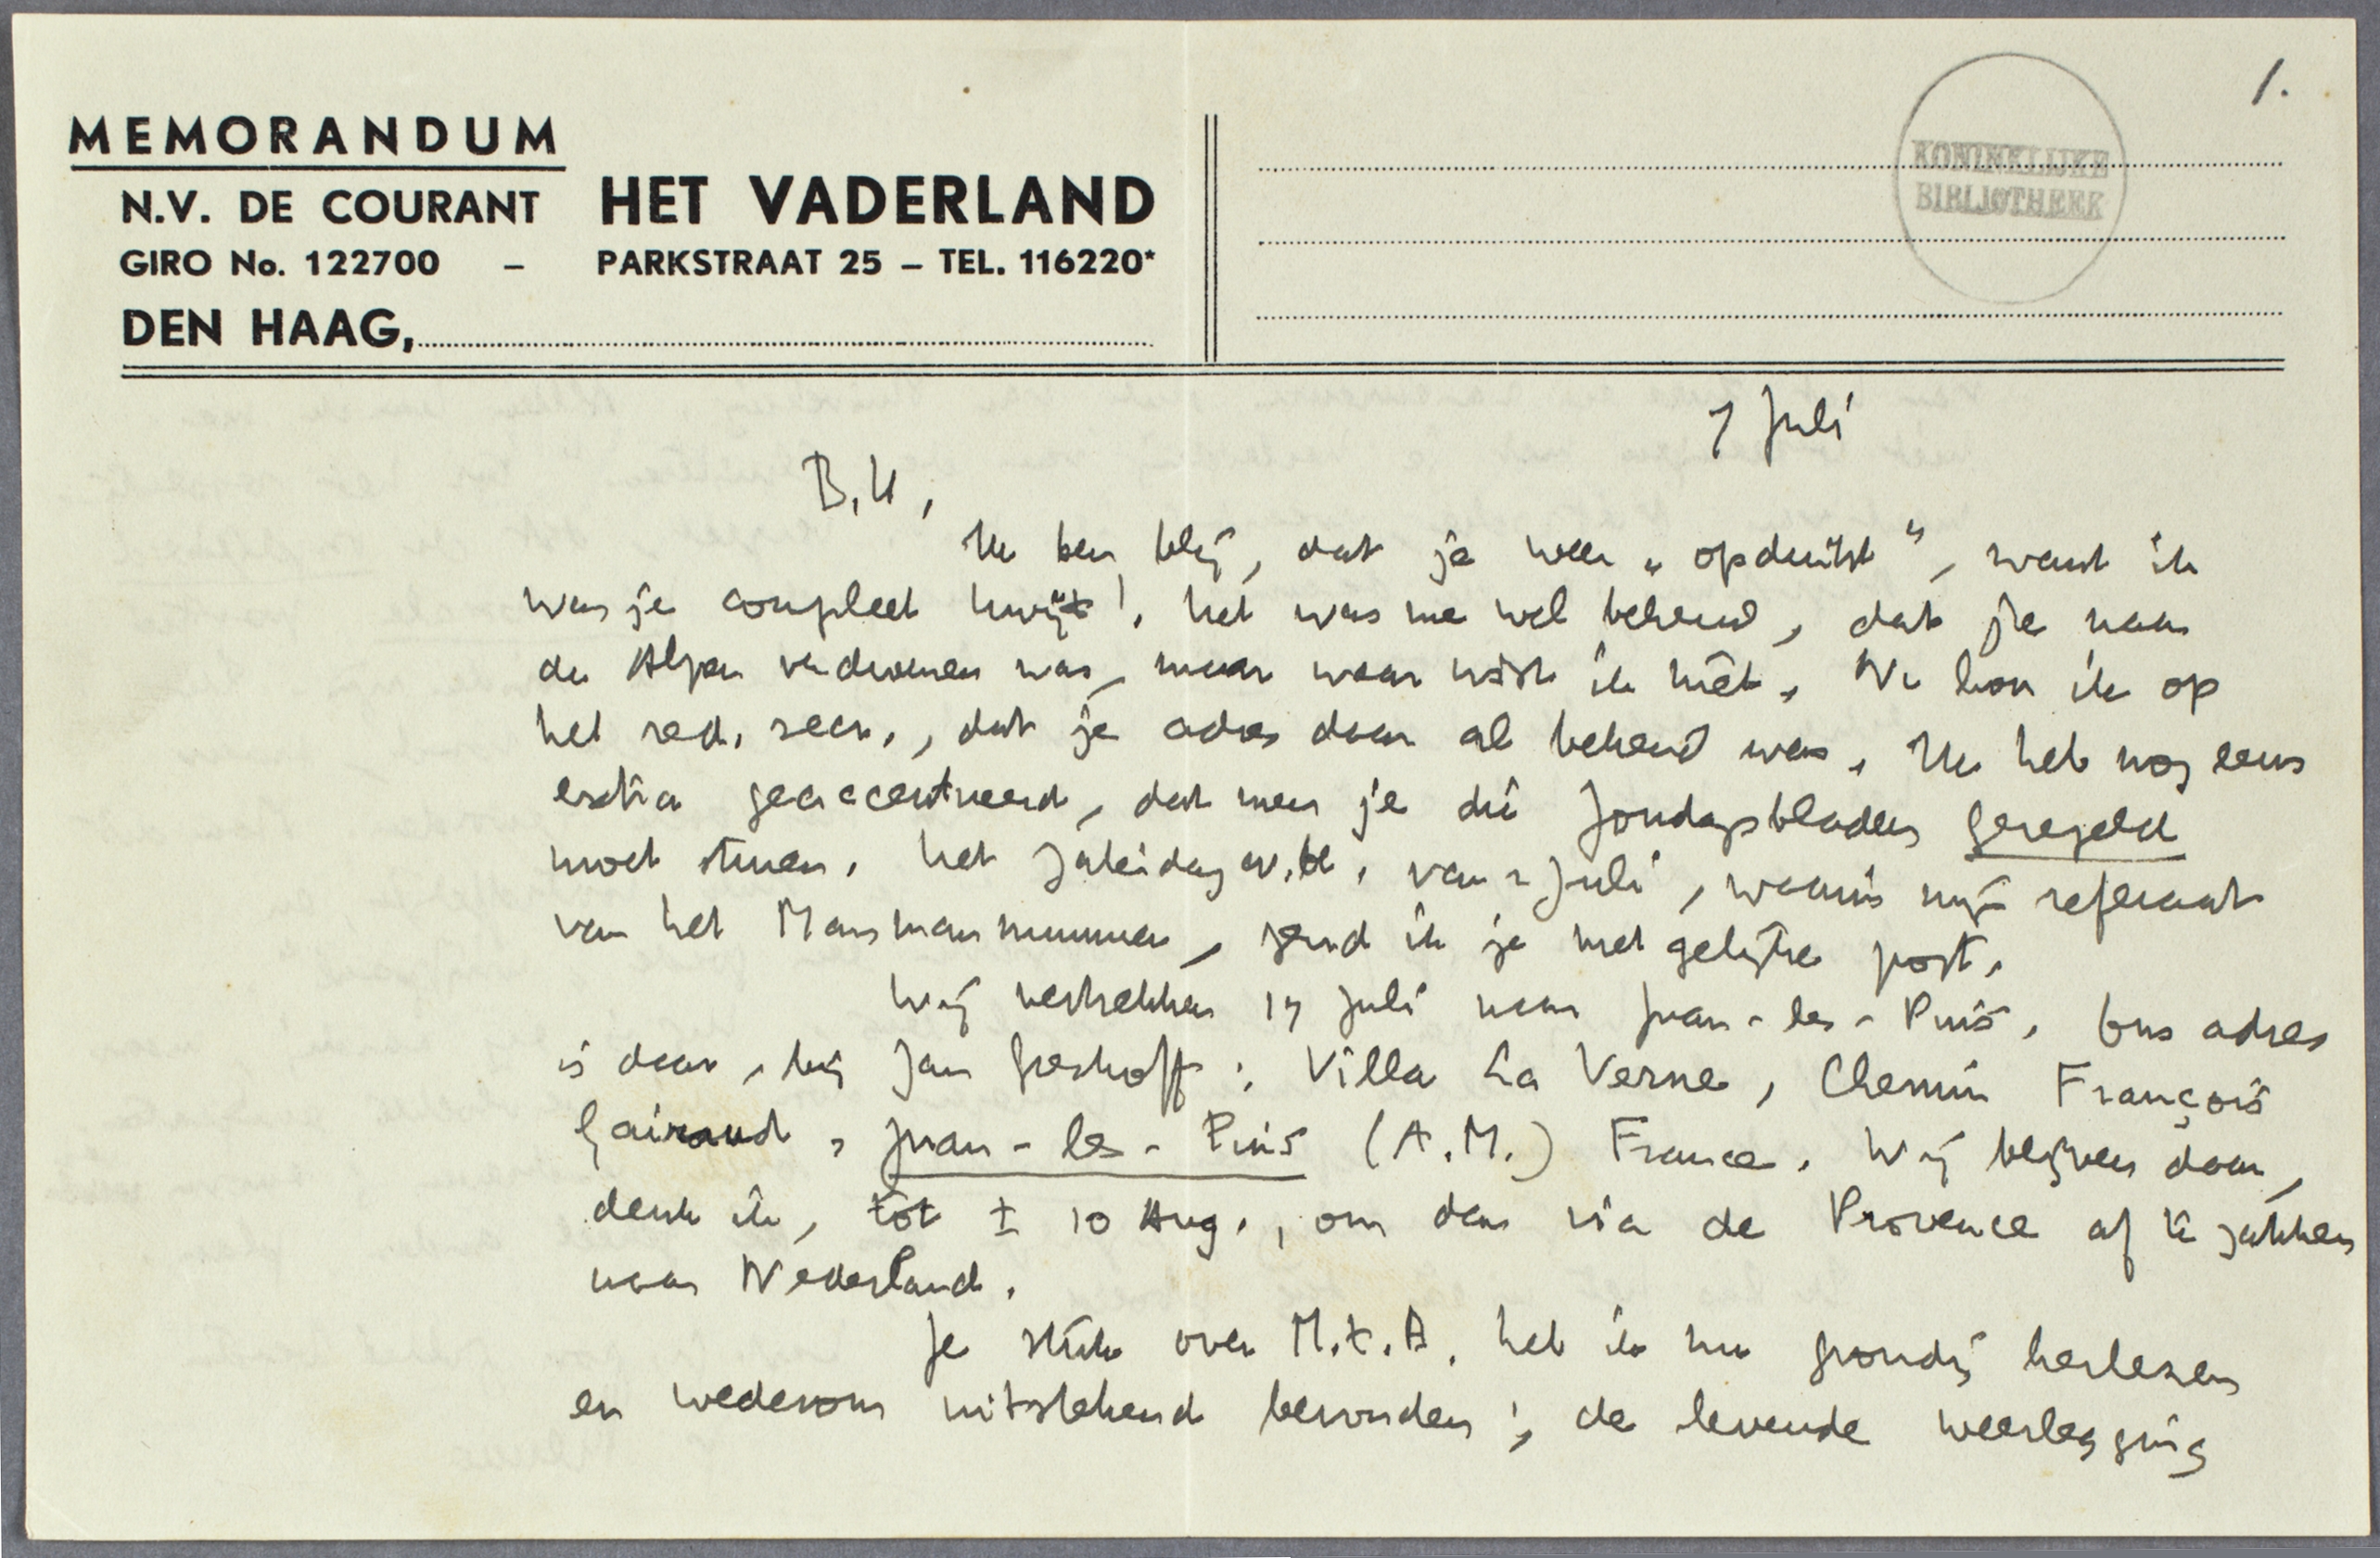 1.
MEMORANDUM
N.V. DE COURANT HET VADERLAND
GIRO No. 122700 – PARKSTRAAT 25 – TEL. 116220*
DEN HAAG,
KONINKLIJKE
BIBLIOTHEEK
7 Juli
B.H,
Ik ben blij, dat je weer „opduikt”, want ik
was je compleet kwijt! Het was me wel bekend, dat je naar
de Alpen verdwenen was, maar waar wist ik niet. Nu hoor ik op
het red. secr., dat je adres daar al bekend was. Ik heb nog eens
extra geaccentueerd, dat men je die Zondagsbladen geregeld
moet sturen. Het Zaterdag av.bl. van 2 Juli, waarin mijn referaat
van het Marsmannummer, zend ik je met gelijke post.
Wij vertrekken 17 Juli naar Juan-les-Pins. Ons adres
is daar, bij Jan Greshoff: Villa La Verne, Chemin François
Gairaud, Juan-les-Pins (A.M.) France. Wij blijven daar,
denk ik, tot ± 10 Aug., om dan via de Provence af te zakken
naar Nederland.
Je stuk over M.t.B. heb ik nu grondig herlezen
en wederom uitstekend bevonden; de levende weerlegging